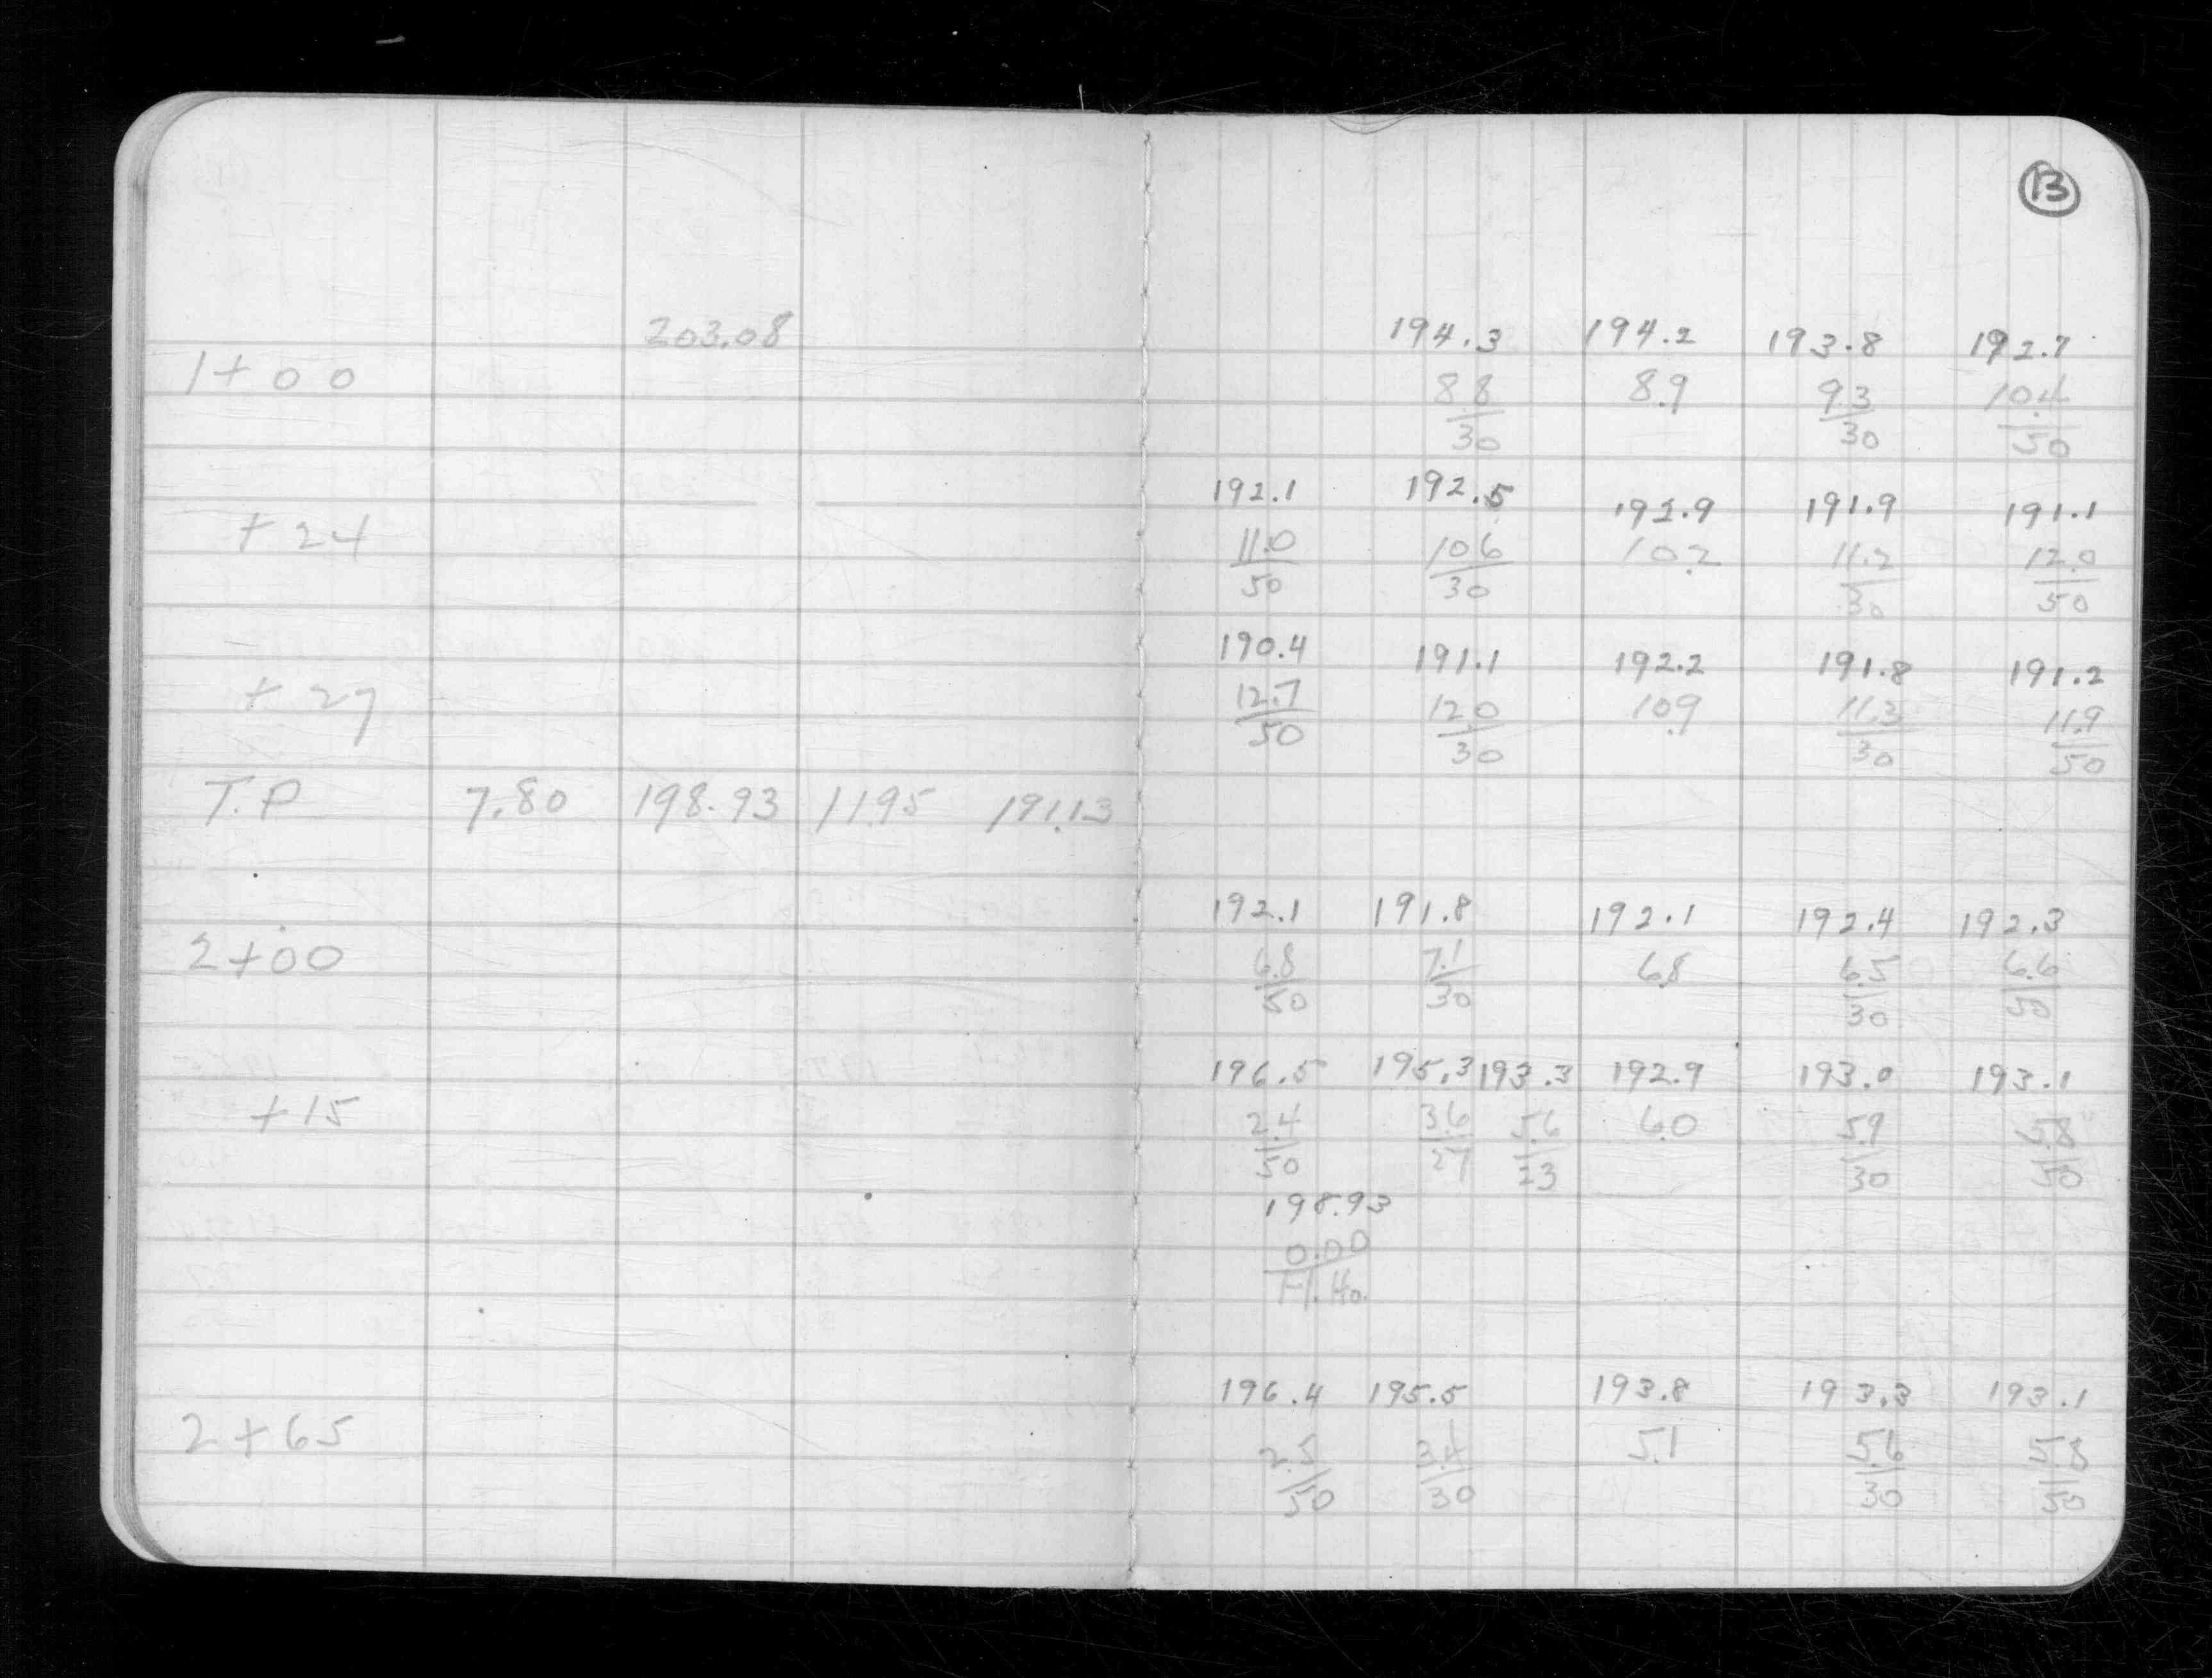 13
203.08 194.3 194.2 193.8 192.7
1+00 8.8 8.9 9.3 10.4
30 30 50
192.1 192.5 192.9 191.9 191.1
+24 11.0 10.6 10.2 11.2 12.0
50 30 30 50
190.4 191.1 192.2 191.8 191.2
+27 12.7 12.0 10.9 11.3 11.9
50 30 30 50
T.P 7.80 198.93 11.95 191.13
192.1 191.8 192.1 192.4 192.3
2+00 6.8 7.1 6.8 6.5 6.6
50 30 30 50
196.5 195.3 193.3 192.9 193.0 193.1
+15 2.4 3.6 5.6 6.0 5.9 5.8
50 27 23 30 50
198.93
0.00
Fl. Ho.
196.4 195.5 193.8 193.3 193.1
2+65 2.5 3.4 5.1 5.6 5.8
50 30 30 50